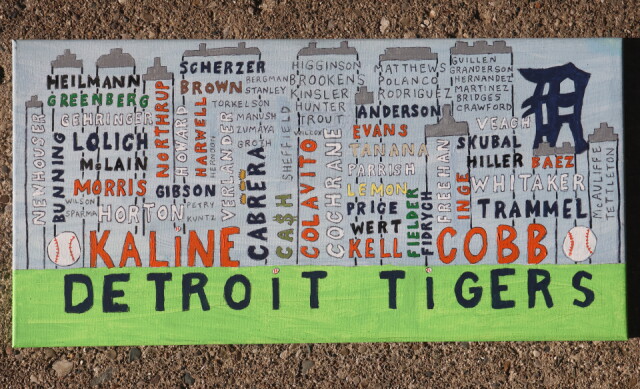 HEILMANN
GREENBERG
GEHRINGER
NEWHOUSER
BUNNING
LOLICH
McLAIN
MORRIS
WILSON
SPARMA
HORTON
NORTHRUP
GIBSON
FETRY
KUNTZ
SCHERZER
BROWN
HOWARD
HARWELL
HERNDON
BERGMAN
STANLEY
TORKELSON
MANUSH
ZUMAYA
GROTH
VERLANDER
CABRERA
SHEFFIELD
CA$H
HIGGINSON
BROOKENS
KINSLER
HUNTER
TROUT
WILCOX
COLAVITO
COCHRANE
MATTHEWS
POLANCO
RODRIGUEZ
ANDERSON
EVANS
TANANA
PARRISH
LEMON
PRICE
WERT
KELL
FIELDER
FIDRYCH
FREEHAN
INGE
GUILLEN
GRANDERSON
HERNANDEZ
MARTINEZ
BRIDGES
CRAWFORD
VEACH
SKUBAL
HILLER
BAEZ
WHITAKER
TRAMMEL
McAULIFFE
TETTLETON
D
KALINE
COBB
DETROIT TIGERS